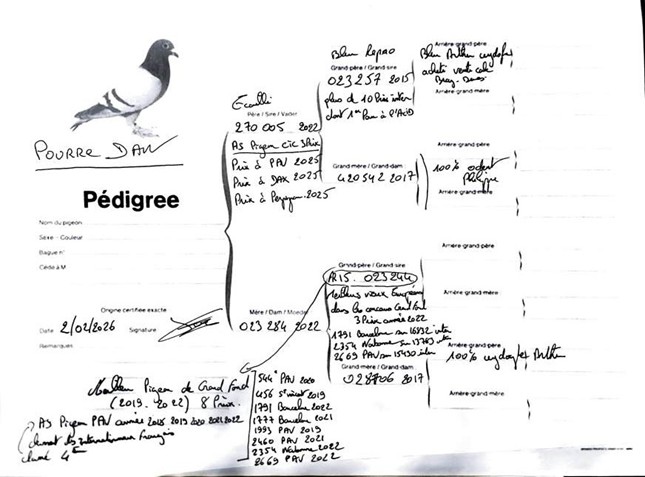 POURRE DAN
Pédigree
Nom du pigeon
Sexe - Couleur
Bague n°
Cédé à M
Origine certifiée exacte
Date 2/02/2026 Signature
Remarques
Ecaillé
Père / Sire / Vader
270 005 2022
AS Pigeon
Prix à PAU 2025
Prix à DAX 2025
Prix à 2025
Mère / Dam / Moeder
023 284 2022
Bleu
Grand-père / Grand-sire
023 257 2015
plus de 10 Prix inter
dont 1er Pau
Grand-mère / Grand-dam
420542 2017
Grand-père / Grand-sire
AR15. 023244
Meilleurs vieux Européen
dans les concours Grand Fond
3 Prix année 2022
1791 Barcelone sur 16932 inter
2354 Narbonne sur 13763 inter
2669 PAU sur 15430 inter
Grand-mère / Grand-dam
2017
Arrière grand-père
Bleu
acheté vente
Arrière grand-mère
Arrière grand-père
100%
Philippe
Arrière grand-mère
Arrière grand-père
Arrière grand-mère
Arrière grand-père
100%
Arrière grand-mère
Meilleur Pigeon de Grand Fond
(2019-2022) 8 Prix
AS Pigeon PAU année 2018 2019 2020 2021 2022
internationaux Français
4e
544e PAU 2020
456 St vincent 2019
1791 Barcelone 2022
1777 Barcelone 2021
1993 PAU 2019
2460 PAU 2021
2354 Narbonne 2022
2669 PAU 2022